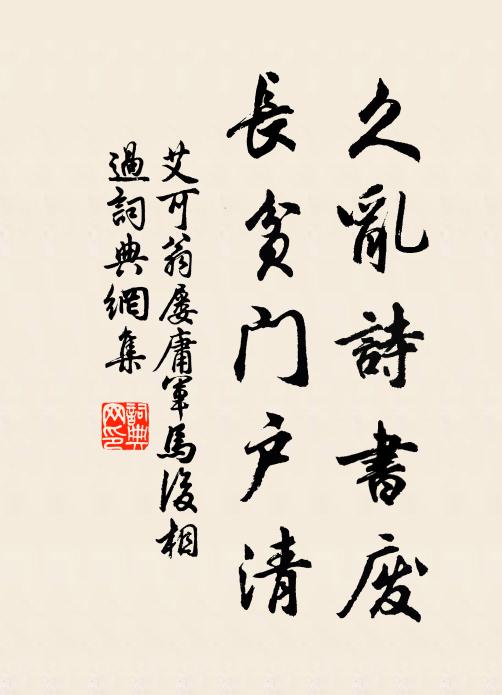 久亂詩書廢
長貧門户清
艾可翁屢庸軍馬後相
過詞典網集
詞典
网印